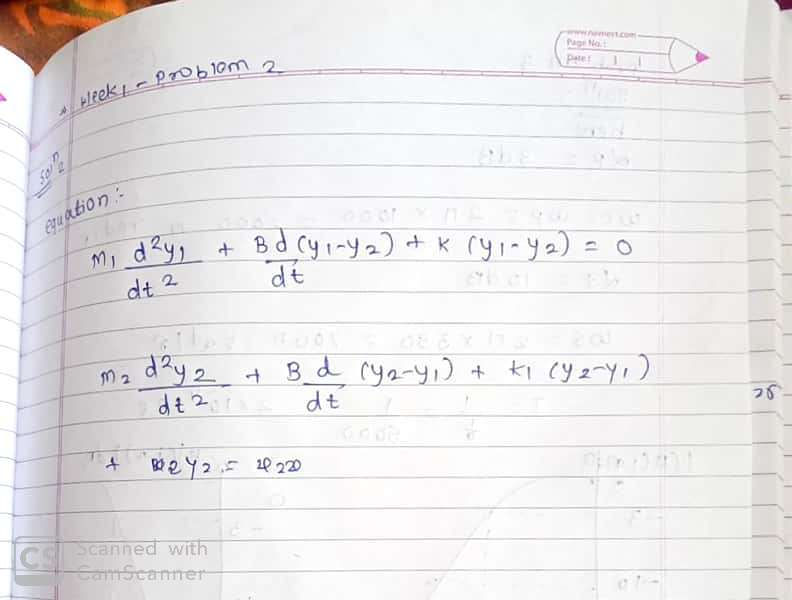 www.navneet.com
Page No.:
Date:
→ Week 1 - Problem 2
Soln 2
equation:-
m1 d²y1/dt² + B d/dt (y1-y2) + K (y1-y2) = 0
m2 d²y2/dt² + B d/dt (y2-y1) + K1 (y2-y1)
+ y2 =
CS Scanned with
CamScanner